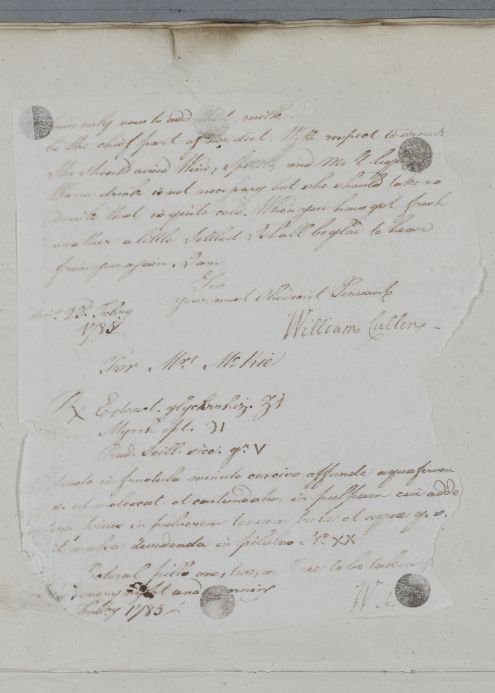 only now to add that milk
be the chief part of her diet. With respect to drink
She should avoid Wine, Spirits, and Malt liquor
Warm drink is not necessary but she should take no
drink that is quite cold. When you have got fresh
weather a little Settled I shall be glad to hear
from you again. I am
Sir
Your most Obedient Servant
23. Febry
1785
William Cullen
For Mrs. McKie
Rx Extract. glycyrrhiz. ʒi
Myrrh. opt. ℈i
Rad. Scill. sicc. gr. V
in frustula minuta conciso affunde aquae ferven
q. s. ut mollescat et contundatur in pulpam cui adde
prius in pulverem terendo trita et aquae q. s.
ut massa dividenda in pilulas No. XX
Pectoral pills one, two, or three to be taken
every night and morning
Febry 1785
W.